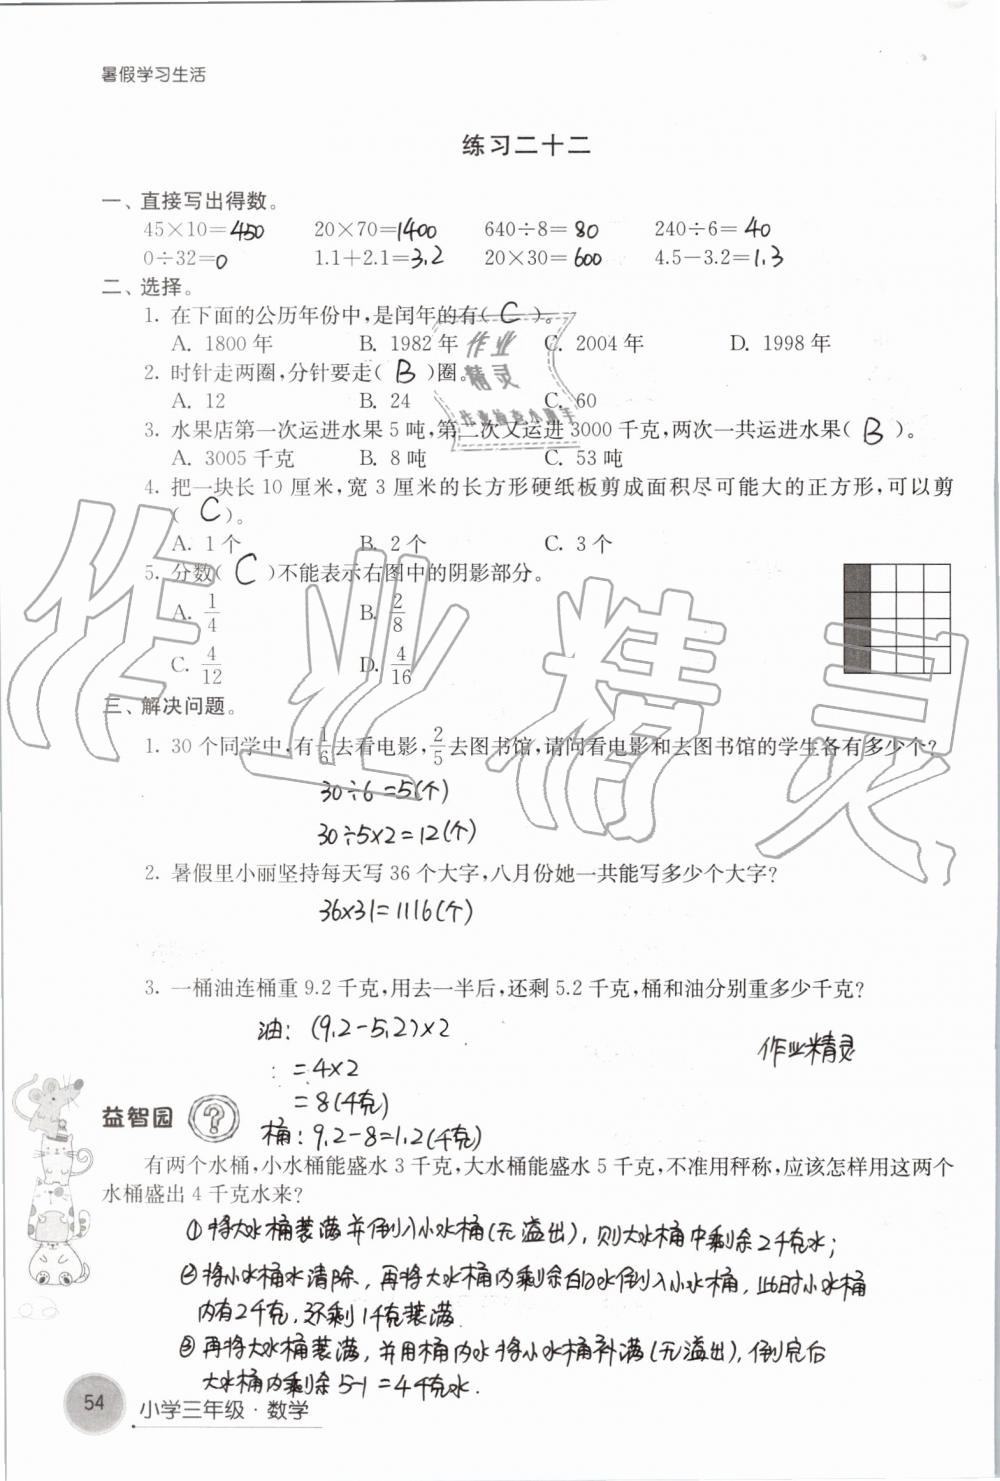 暑假学习生活
练习二十二
一、直接写出得数。
45×10=450 20×70=1400 640÷8=80 240÷6=40
0÷32=0 1.1+2.1=3.2 20×30=600 4.5-3.2=1.3
二、选择。
1. 在下面的公历年份中,是闰年的有( C )。
A. 1800年 B. 1982年 C. 2004年 D. 1998年
2. 时针走两圈,分针要走( B )圈。
A. 12 B. 24 C. 60
3. 水果店第一次运进水果5吨,第二次又运进3000千克,两次一共运进水果( B )。
A. 3005千克 B. 8吨 C. 53吨
4. 把一块长10厘米,宽3厘米的长方形硬纸板剪成面积尽可能大的正方形,可以剪
( C )。
A. 1个 B. 2个 C. 3个
5. 分数( C )不能表示右图中的阴影部分。
A. 1/4 B. 2/8
C. 4/12 D. 4/16
三、解决问题。
1. 30个同学中,有1/6去看电影,2/5去图书馆,请问看电影和去图书馆的学生各有多少个?
30÷6=5(个)
30÷5×2=12(个)
2. 暑假里小丽坚持每天写36个大字,八月份她一共能写多少个大字?
36×31=1116(个)
3. 一桶油连桶重9.2千克,用去一半后,还剩5.2千克,桶和油分别重多少千克?
油: (9.2-5.2)×2
=4×2
=8(千克)
桶: 9.2-8=1.2(千克)
作业精灵
益智园 ?
有两个水桶,小水桶能盛水3千克,大水桶能盛水5千克,不准用秤称,应该怎样用这两个
水桶盛出4千克水来?
①将大水桶装满并倒入小水桶(无溢出),则大水桶中剩余2千克水;
②将小水桶水清除,再将大水桶内剩余的水倒入小水桶,此时小水桶
内有2千克,还剩1千克装满.
③再将大水桶装满,并用桶内水将小水桶补满(无溢出),倒完后
大水桶内剩余5-1=4千克水.
54
小学三年级·数学
作业精灵
作业
精灵